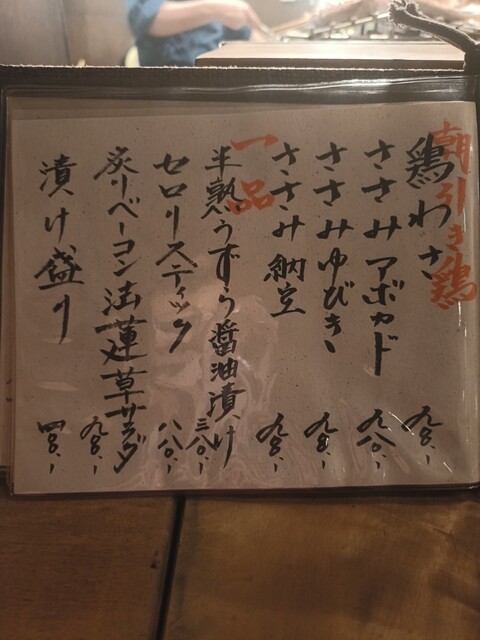 朝引き鶏
鶏わさ 九八〇、ー
ささみアボカド 九八〇、ー
ささみゆびき 九八〇、ー
ささみ納豆 九八〇、ー
一品
半熟うずら醤油漬け 三八〇、ー
セロリスティック
炙りベーコン法蓮草サラダ
漬け盛り